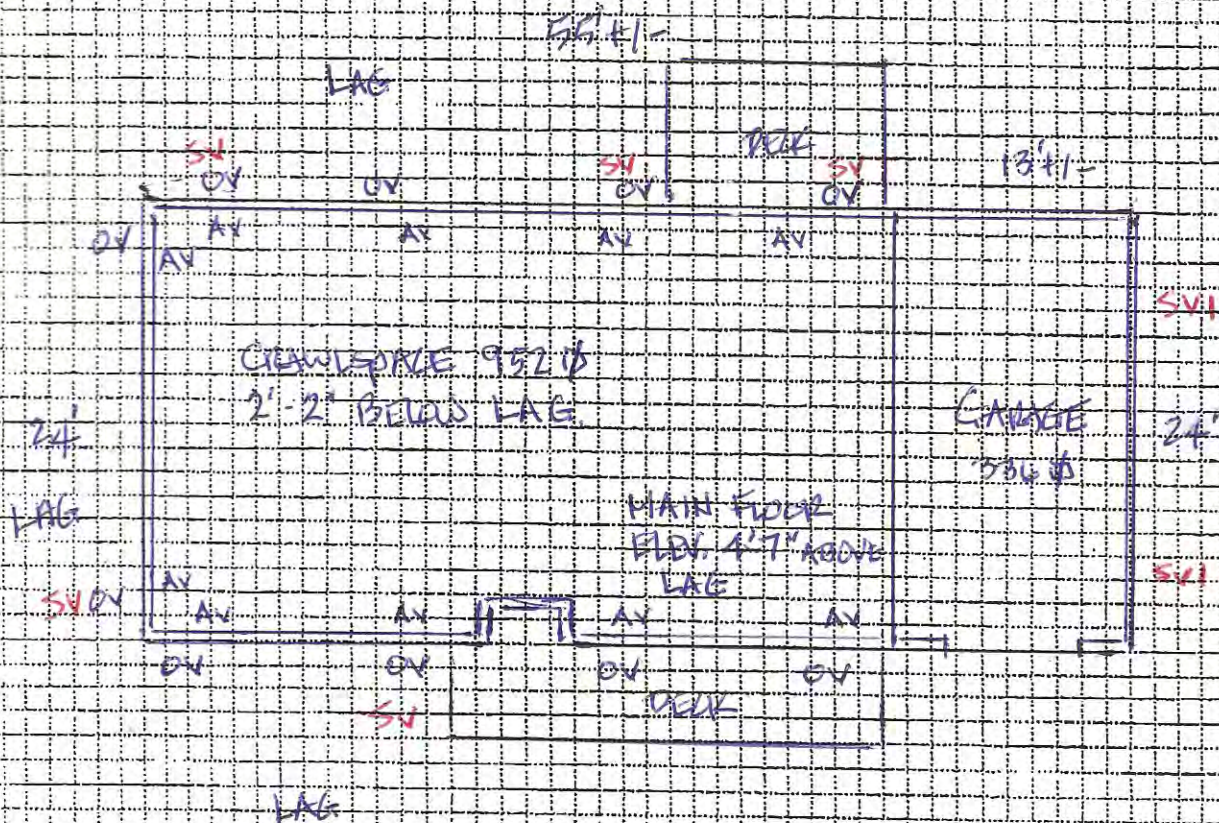 55' +/-
LAG
DECK
13' +/-
SV
SV
SV
OV
OV
OV
OV
OV
AV
AV
AV
AV
AV
SV1
CRAWLSPACE 952 ф
2'-2" BELOW LAG
GARAGE
336 ф
24'
24'
LAG
MAIN FLOOR
ELEV. 4'7" ABOVE
LAG
SV1
AV
SV OV
AV
AV
AV
AV
OV
OV
OV
OV
SV
DECK
LAG